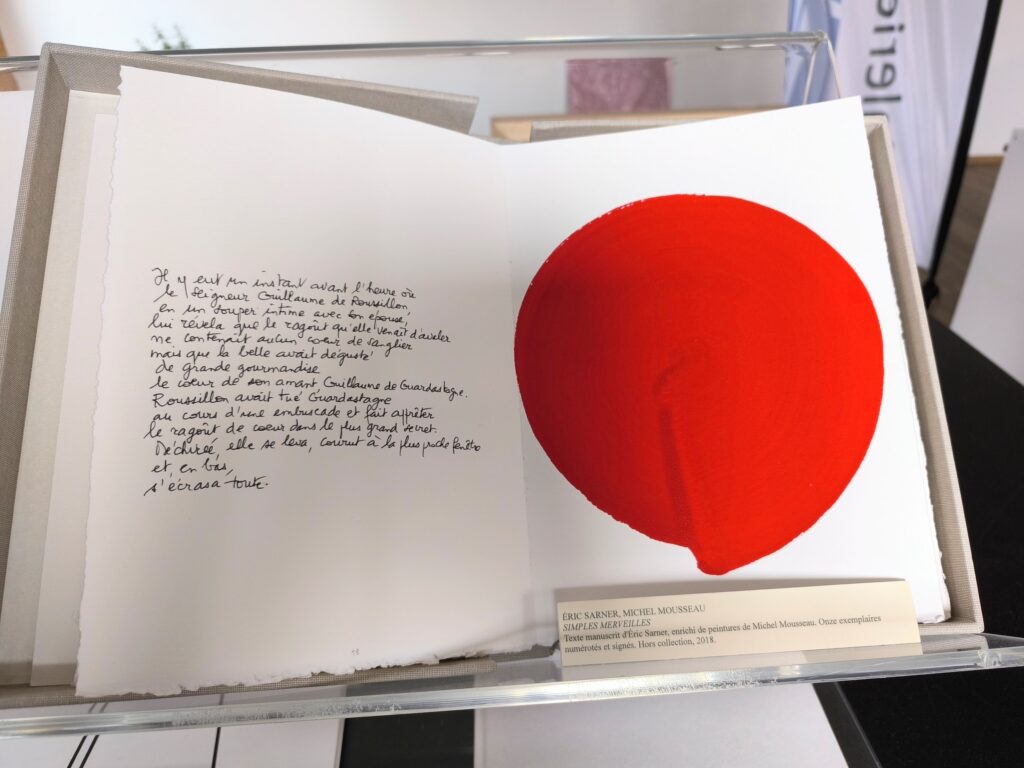 Il y eut un instant avant l'heure où
le Seigneur Guillaume de Roussillon
en un souper intime avec son épouse,
lui révéla que le ragoût qu'elle venait d'avaler
ne contenait aucun coeur de sanglier
mais que la belle avait dégusté
de grande gourmandise
le coeur de son amant Guillaume de Guardastagne.
Roussillon avait tué Guardastagne
au cours d'une embuscade et fait apprêter
le ragoût de coeur dans le plus grand secret.
Déchirée, elle se leva, courut à la plus proche fenêtre
et, en bas,
s'écrasa toute.
ÉRIC SARNER, MICHEL MOUSSEAU
SIMPLES MERVEILLES
Texte manuscrit d'Éric Sarner, enrichi de peintures de Michel Mousseau. Onze exemplaires
numérotés et signés. Hors collection, 2018.
lerie